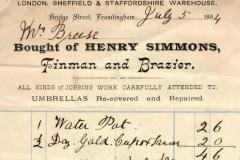 LONDON, SHEFFIELD & STAFFORDSHIRE WAREHOUSE.
Bridge Street, Framlingham, July 5 1894
Mrs Breese
Bought of HENRY SIMMONS,
Tinman and Brazier.
ALL KINDS of JOBBING WORK CAREFULLY ATTENDED TO.
UMBRELLAS Re-covered and Repaired.
1 Water Pot 2 6
½ Doz Gold 2 0
4 6